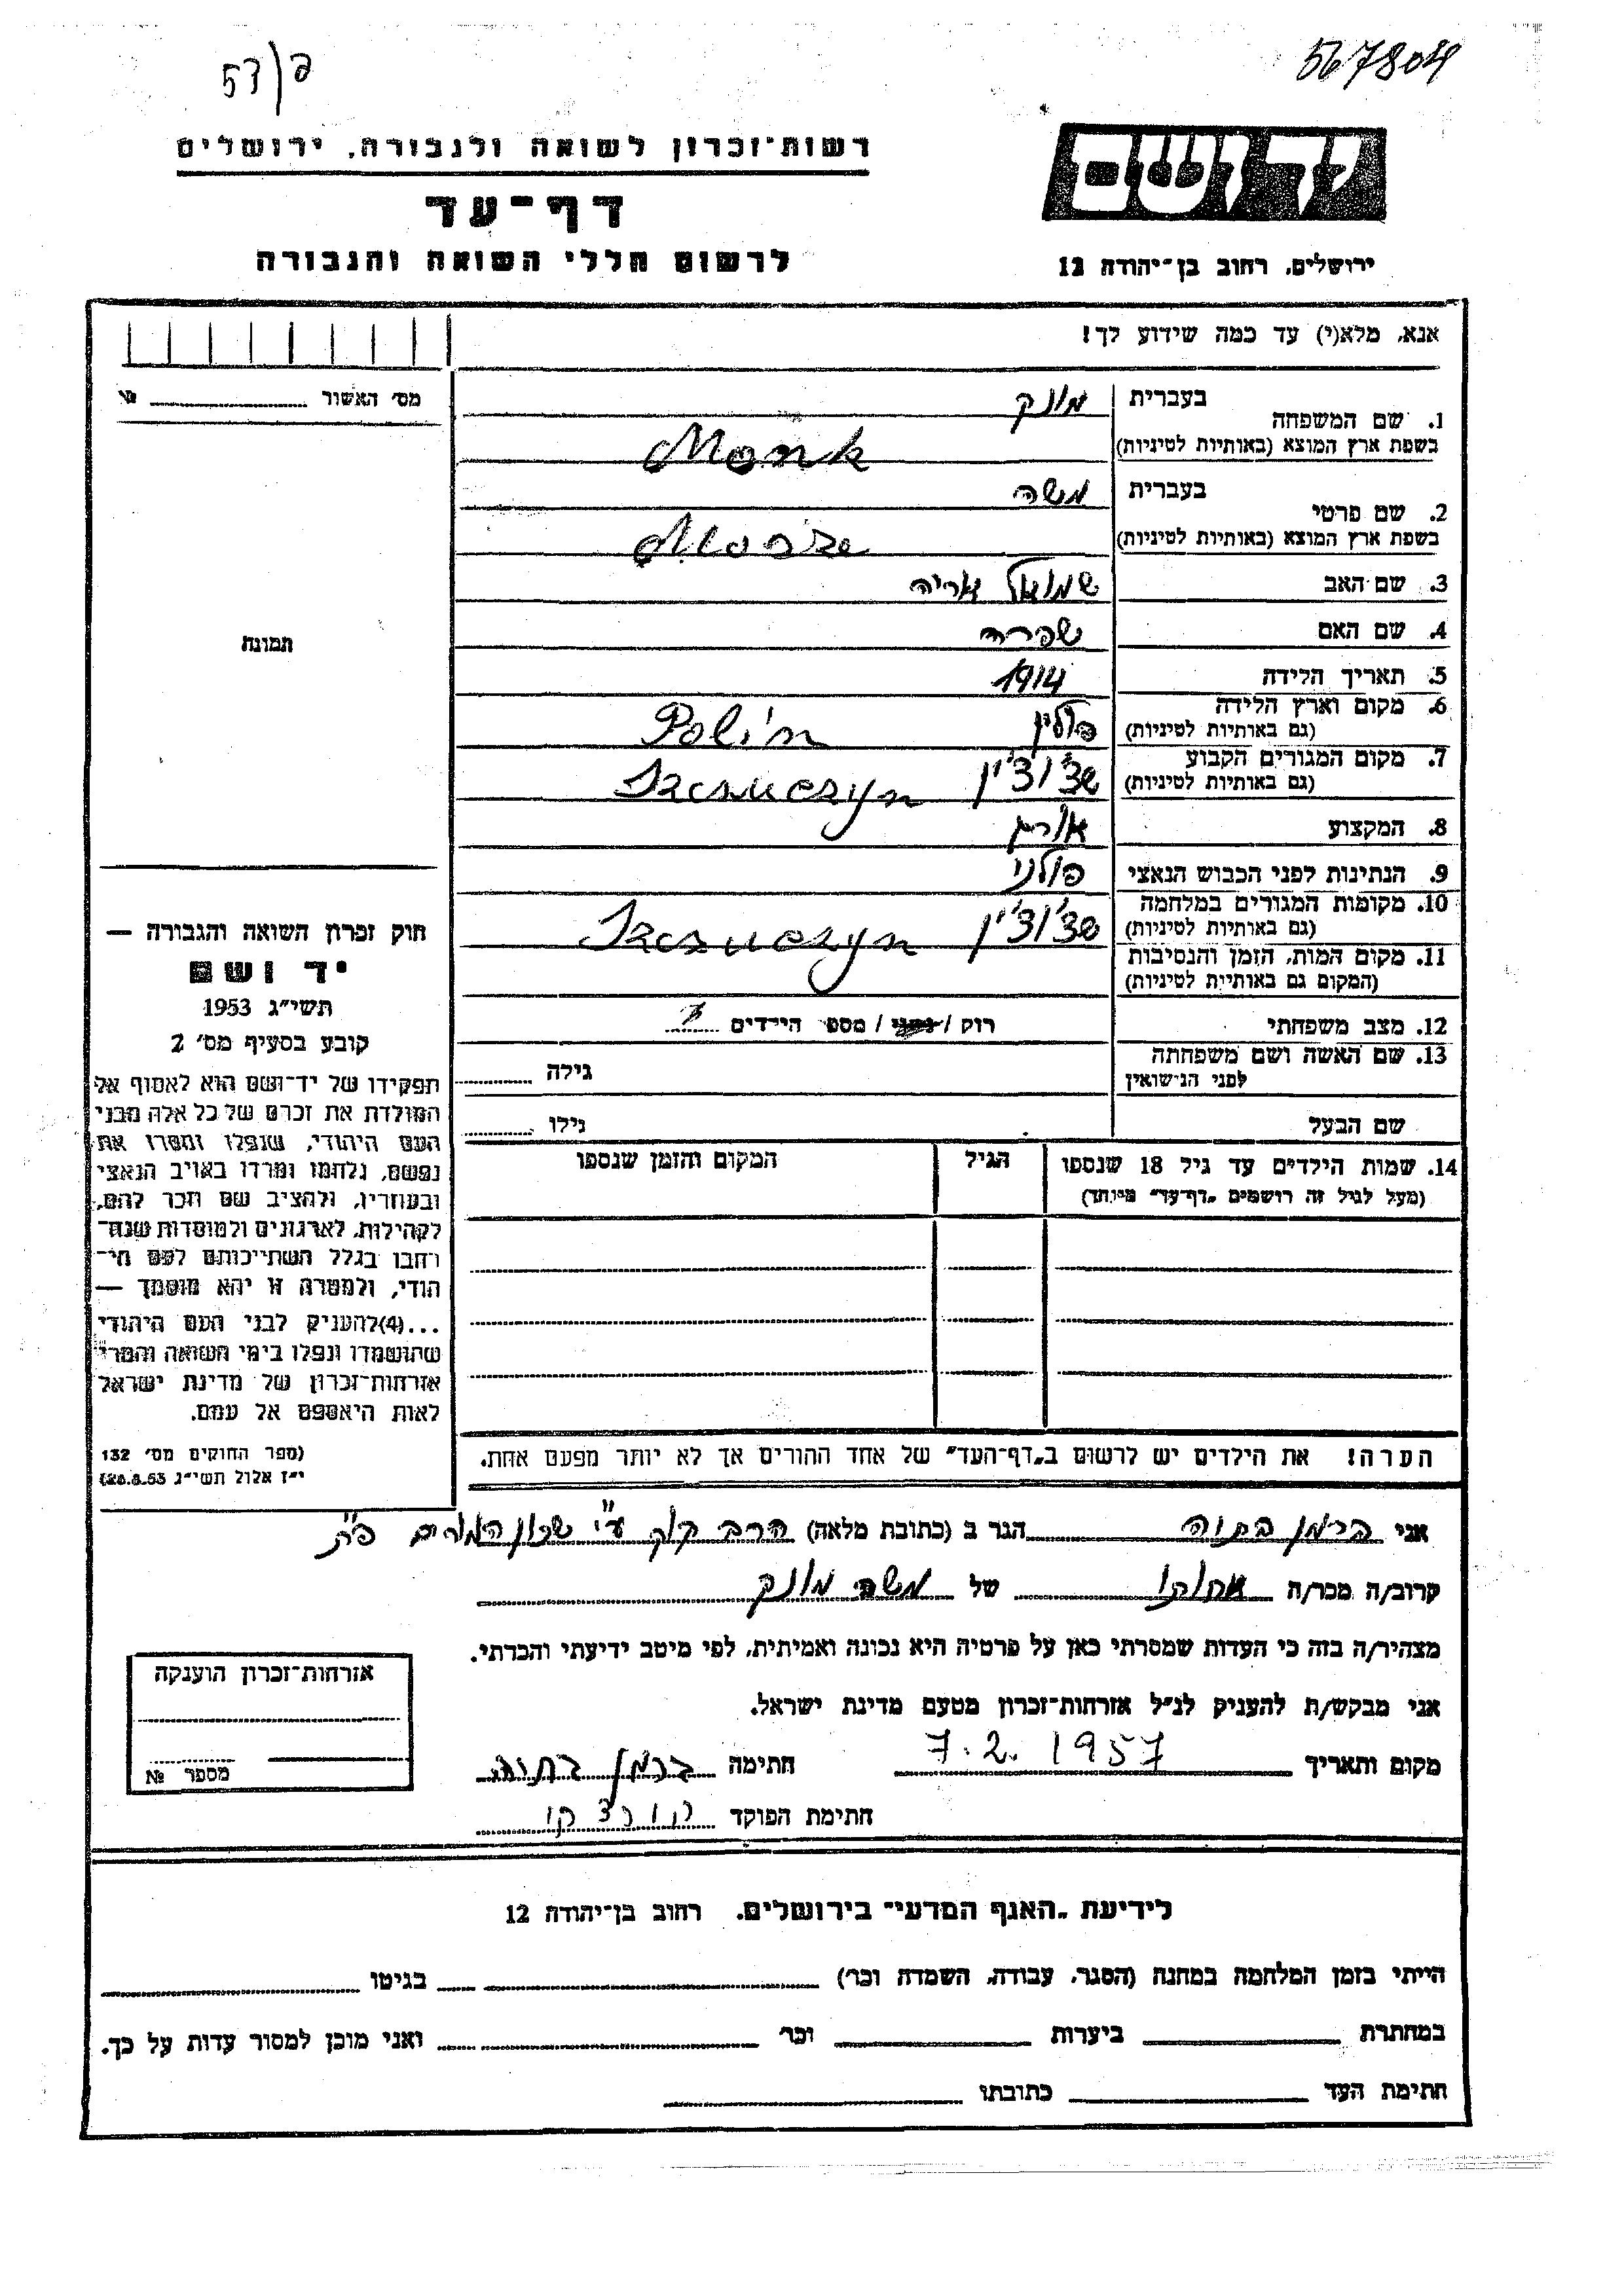 567804
53/פ
רשות־זכרון לשואה ולגבורה, ירושלים
דף־עד
לרשום חללי השואה והגבורה
יד ושם
ירושלים, רחוב בן־יהודה 12
אנא, מלא(י) עד כמה שידוע לך!
מס׳ האשור №
1. שם המשפחה
בעברית מונק
בשפת ארץ המוצא (באותיות לטיניות) Monk
2. שם פרטי
בעברית משה
בשפת ארץ המוצא (באותיות לטיניות) Mosze
3. שם האב שמואל אריה
4. שם האם שפרה
5. תאריך הלידה 1914
6. מקום וארץ הלידה פולין Polin
(גם באותיות לטיניות)
7. מקום המגורים הקבוע שצ׳וצ׳ין
(גם באותיות לטיניות)
8. המקצוע
9. הנתינות לפני הכבוש הנאצי פולני
10. מקומות המגורים במלחמה שצ׳וצ׳ין
(גם באותיות לטיניות)
11. מקום המות, הזמן והנסיבות
(המקום גם באותיות לטיניות)
12. מצב משפחתי רוק / נשוי / מספ׳ הילדים
13. שם האשה ושם משפחתה
לפני הנישואין גילה
שם הבעל גילו
14. שמות הילדים עד גיל 18 שנספו הגיל המקום והזמן שנספו
(מעל לגיל זה רושמים „דף־עד״ מיוחד)
הערה! את הילדים יש לרשום ב„דף־העד״ של אחד ההורים אך לא יותר מפעם אחת.
תמונה
חוק זכרון השואה והגבורה —
יד ושם
תשי״ג 1953
קובע בסעיף מס׳ 2
תפקידו של יד־ושם הוא לאסוף אל
המולדת את זכרם של כל אלה מבני
העם היהודי, שנפלו ומסרו את
נפשם, נלחמו ומרדו באויב הנאצי
ובעוזריו, ולהציב שם וזכר להם,
לקהילות, לארגונים ולמוסדות שנח־
רחבו בגלל השתייכותם לעם הי־
הודי, ולמטרה זו יהא מוסמך —
...(4)להעניק לבני העם היהודי
שהושמדו ונפלו בימי השואה והמרי
אזרחות־זכרון של מדינת ישראל
לאות היאספם אל עמם.
(ספר החוקים מס׳ 132
י״ז אלול תשי״ג 28.8.53)
אני ברמן בתיה הגר ב (כתובת מלאה) הרב קוק ע״י שכון המורים פ״ת
קרוב/ה מכר/ה אחותו של משה מונק
מצהיר/ה בזה כי העדות שמסרתי כאן על פרטיה היא נכונה ואמיתית, לפי מיטב ידיעתי והכרתי.
אני מבקש/ת להעניק לנ״ל אזרחות־זכרון מטעם מדינת ישראל.
מקום ותאריך 7.2.1957 חתימה ברמן בתיה
חתימת הפוקד
אזרחות־זכרון הוענקה
מספר №
לידיעת „האגף המדעי״ בירושלים, רחוב בן־יהודה 12
הייתי בזמן המלחמה במחנה (הסגר, עבודה, השמדה וכר׳) בגיטו
במחתרת ביערות וכר׳ ואני מוכן למסור עדות על כך.
חתימת העד כתובתו